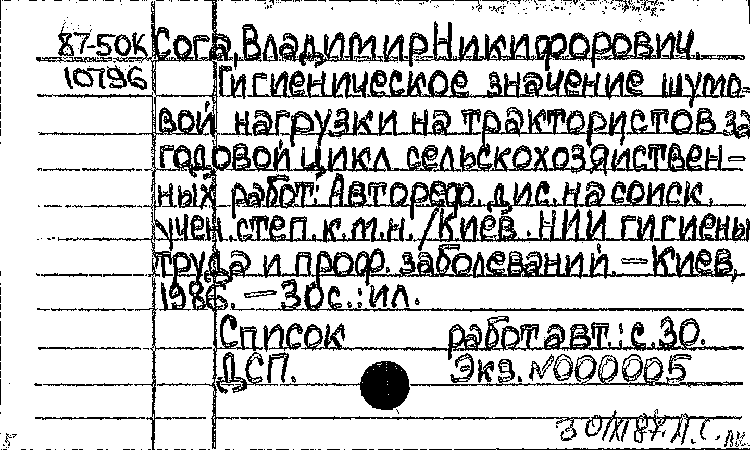 87-50К Сога, Владимир Никифорович.
10796 Гигиеническое значение шумо-
вой нагрузки на трактористов за
годовой цикл сельскохозяйствен-
ных работ: Автореф. дис. на соиск.
учен. степ. к.м.н. /Киев. НИИ гигиены
труда и проф. заболеваний. — Киев,
1986. — 30с.: ил.
Список работ авт.: с. 30.
ДСП. Экз. №000005